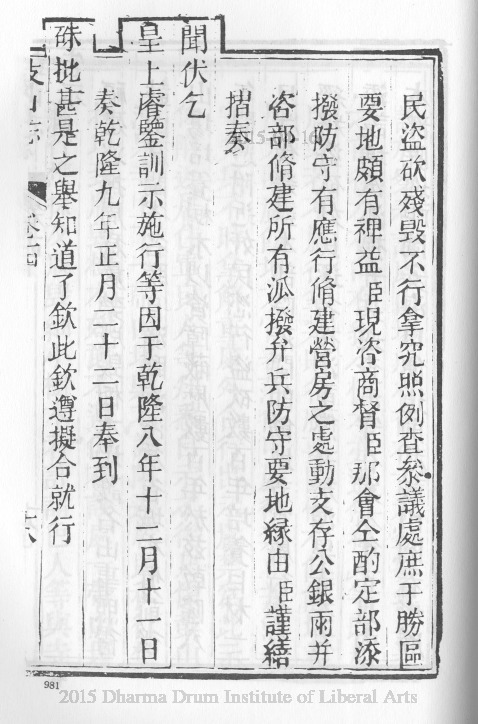 民盜砍殘毀不行拿究照例查叅議處庶于勝區
要地頗有裨益臣現咨商督臣那會仝酌定部添
撥防守有應行脩建營房之處動支存公銀兩并
咨部脩建所有派撥弁兵防守要地緣由臣謹繕
摺奏
聞伏乞
皇上睿鑒訓示施行等因于乾隆八年十二月十一日
奏乾隆九年正月二十二日奉到
硃批甚是之舉知道了欽此欽遵擬合就行
山志
卷十四
981
2015 Dharma Drum Institute of Liberal Arts